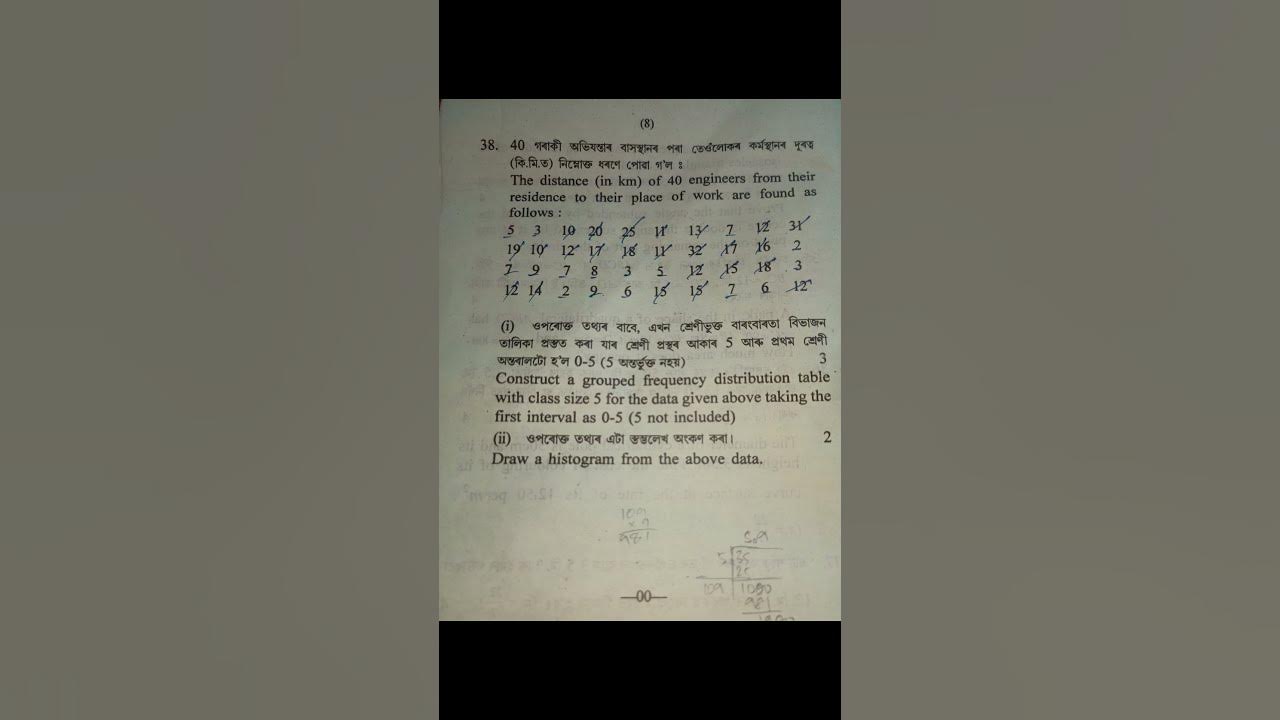 (8)
38. 40 গৰাকী অভিযন্তাৰ বাসস্থানৰ পৰা তেওঁলোকৰ কৰ্মস্থানৰ দূৰত্ব
(কি.মি.ত) নিম্নোক্ত ধৰণে পোৱা গ'ল :
The distance (in km) of 40 engineers from their
residence to their place of work are found as
follows :
5 3 10 20 25 11 13 7 12 31
19 10 12 17 18 11 32 17 16 2
7 9 7 8 3 5 12 15 18 3
12 14 2 9 6 15 15 7 6 12
(i) ওপৰোক্ত তথ্যৰ বাবে, এখন শ্ৰেণীভুক্ত বাৰংবাৰতা বিভাজন
তালিকা প্ৰস্তুত কৰা যাৰ শ্ৰেণী প্ৰস্থৰ আকাৰ 5 আৰু প্ৰথম শ্ৰেণী
অন্তৰালটো হ'ল 0-5 (5 অন্তৰ্ভুক্ত নহয়) 3
Construct a grouped frequency distribution table
with class size 5 for the data given above taking the
first interval as 0-5 (5 not included)
(ii) ওপৰোক্ত তথ্যৰ এটা স্তম্ভলেখ অংকণ কৰা। 2
Draw a histogram from the above data.
—00—